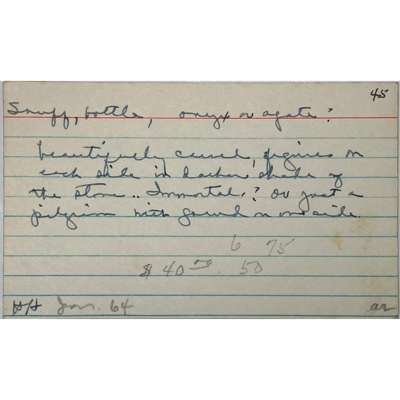 45
Snuff, bottle, onyx or agate?
beautifully carved, figures on
each side in darker shade of
the stone.. Immortal? Or just a
pilgrim with gourd on one side.
6 75
$40.00 50
Jan. 64